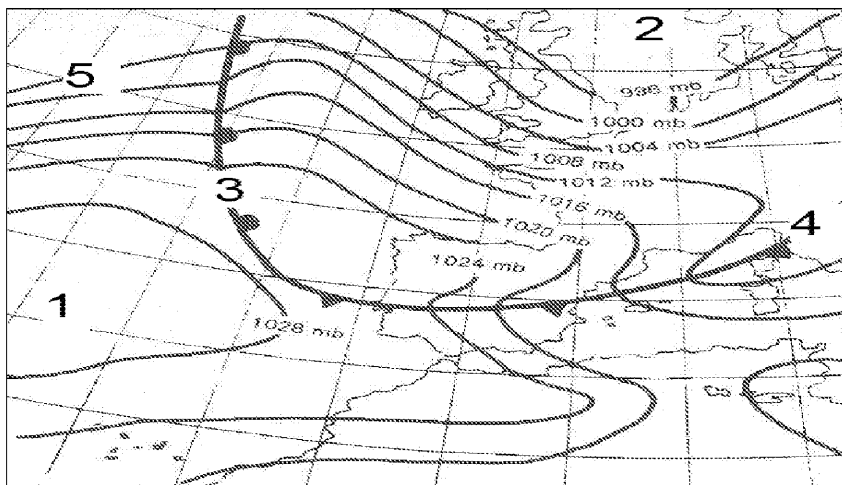 2
5
996 mb
1000 mb
1004 mb
1008 mb
1012 mb
3
1016 mb
1020 mb
4
1024 mb
1
1028 mb